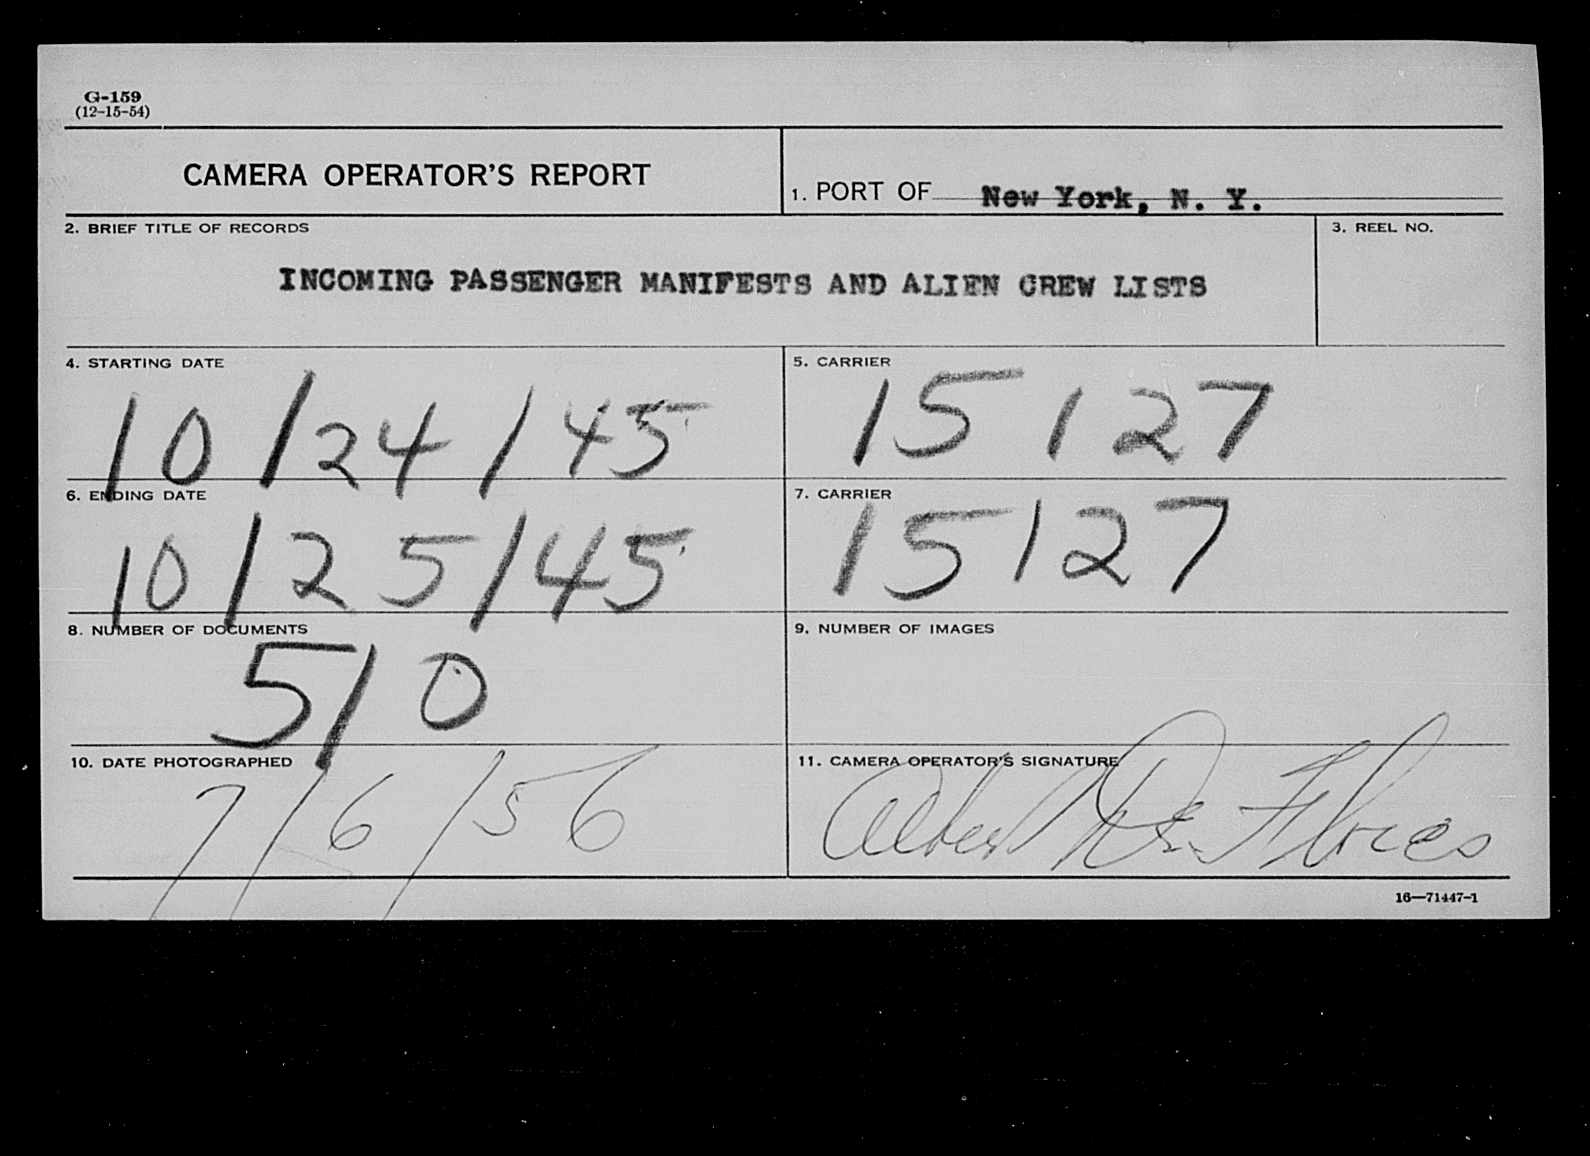 G-159
(12-15-54)
CAMERA OPERATOR'S REPORT
1. PORT OF New York, N. Y.
2. BRIEF TITLE OF RECORDS
3. REEL NO.
INCOMING PASSENGER MANIFESTS AND ALIEN CREW LISTS
4. STARTING DATE
5. CARRIER
10/24/45
15127
6. ENDING DATE
7. CARRIER
10/25/45
15127
8. NUMBER OF DOCUMENTS
9. NUMBER OF IMAGES
510
10. DATE PHOTOGRAPHED
11. CAMERA OPERATOR'S SIGNATURE
7/6/56
Albert De Flores
16—71447-1